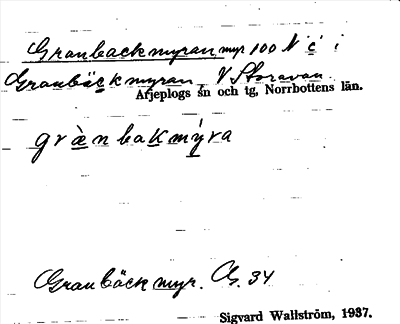 Granbackmyran, myr 100 N č i
Granbäckmyran, V Storavan.
Arjeplogs sn och tg, Norrbottens län.
græ̀nbakmýra
Granbäckmyr. G. 34
Sigvard Wallström, 1937.